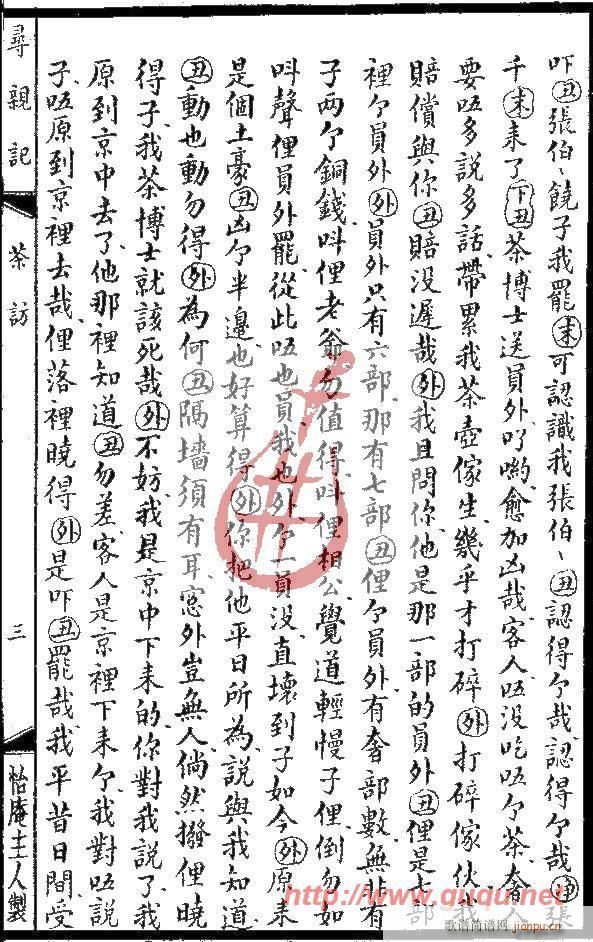 吓丑張伯〻饒子我罷末可認識我張伯〻丑認得个哉認得个哉淨張
千末末了下丑茶博士送員外吖喲愈加凶哉客人唔沒吃唔个茶奢人
要唔多說多話帶累我茶壺傢生幾乎才打碎外打碎傢伙我
賠償與你丑賠沒遲哉外我且問你他是那一部的員外丑俚是七部
裡个員外外員外只有六部那有七部丑俚个員外有奢部數無非有
子兩个銅錢呌俚老爺勿值得呌俚相公覺道輕慢子俚倒勿如
呌聲俚員外罷從此唔也員我也外个一員沒直壞到子如今外原來
是個土豪丑凶个半邊也好算得外你把他平日所為說與我知道
丑動也動勿得外為何丑隔墻須有耳窓外豈無人倘然撥俚曉
得子我茶博士就該死哉外不妨我是京中下來的你對我說了我
原到京中去了他那裡知道丑勿差客人是京裡下來个我對唔說
子唔原到京裡去哉俚落裡曉得外是吓丑罷哉我平昔日間受
尋親記
茶訪
三
怡庵主人製
http://www.ququ.net
歌谱简谱网
jianpu.cn